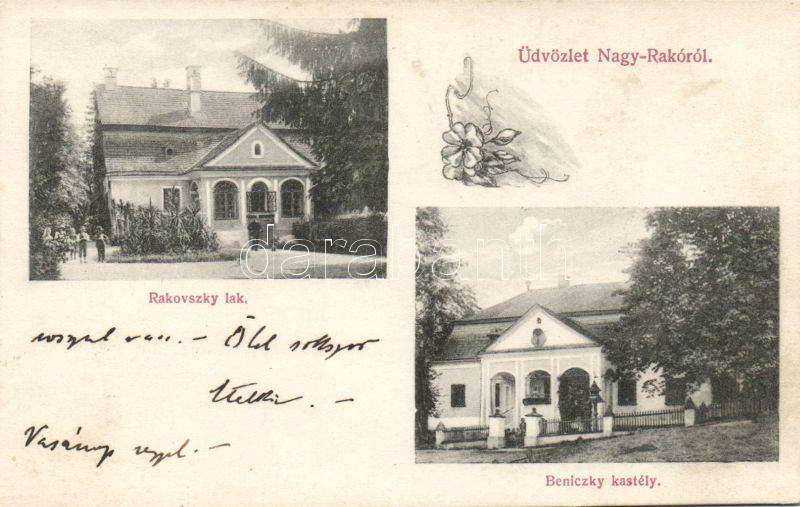 Üdvözlet Nagy-Rakóról.
Rakovszky lak.
van. - Ölel sokszor
Etelka. -
Vasárnap reggel. -
Beniczky kastély.
darabanth